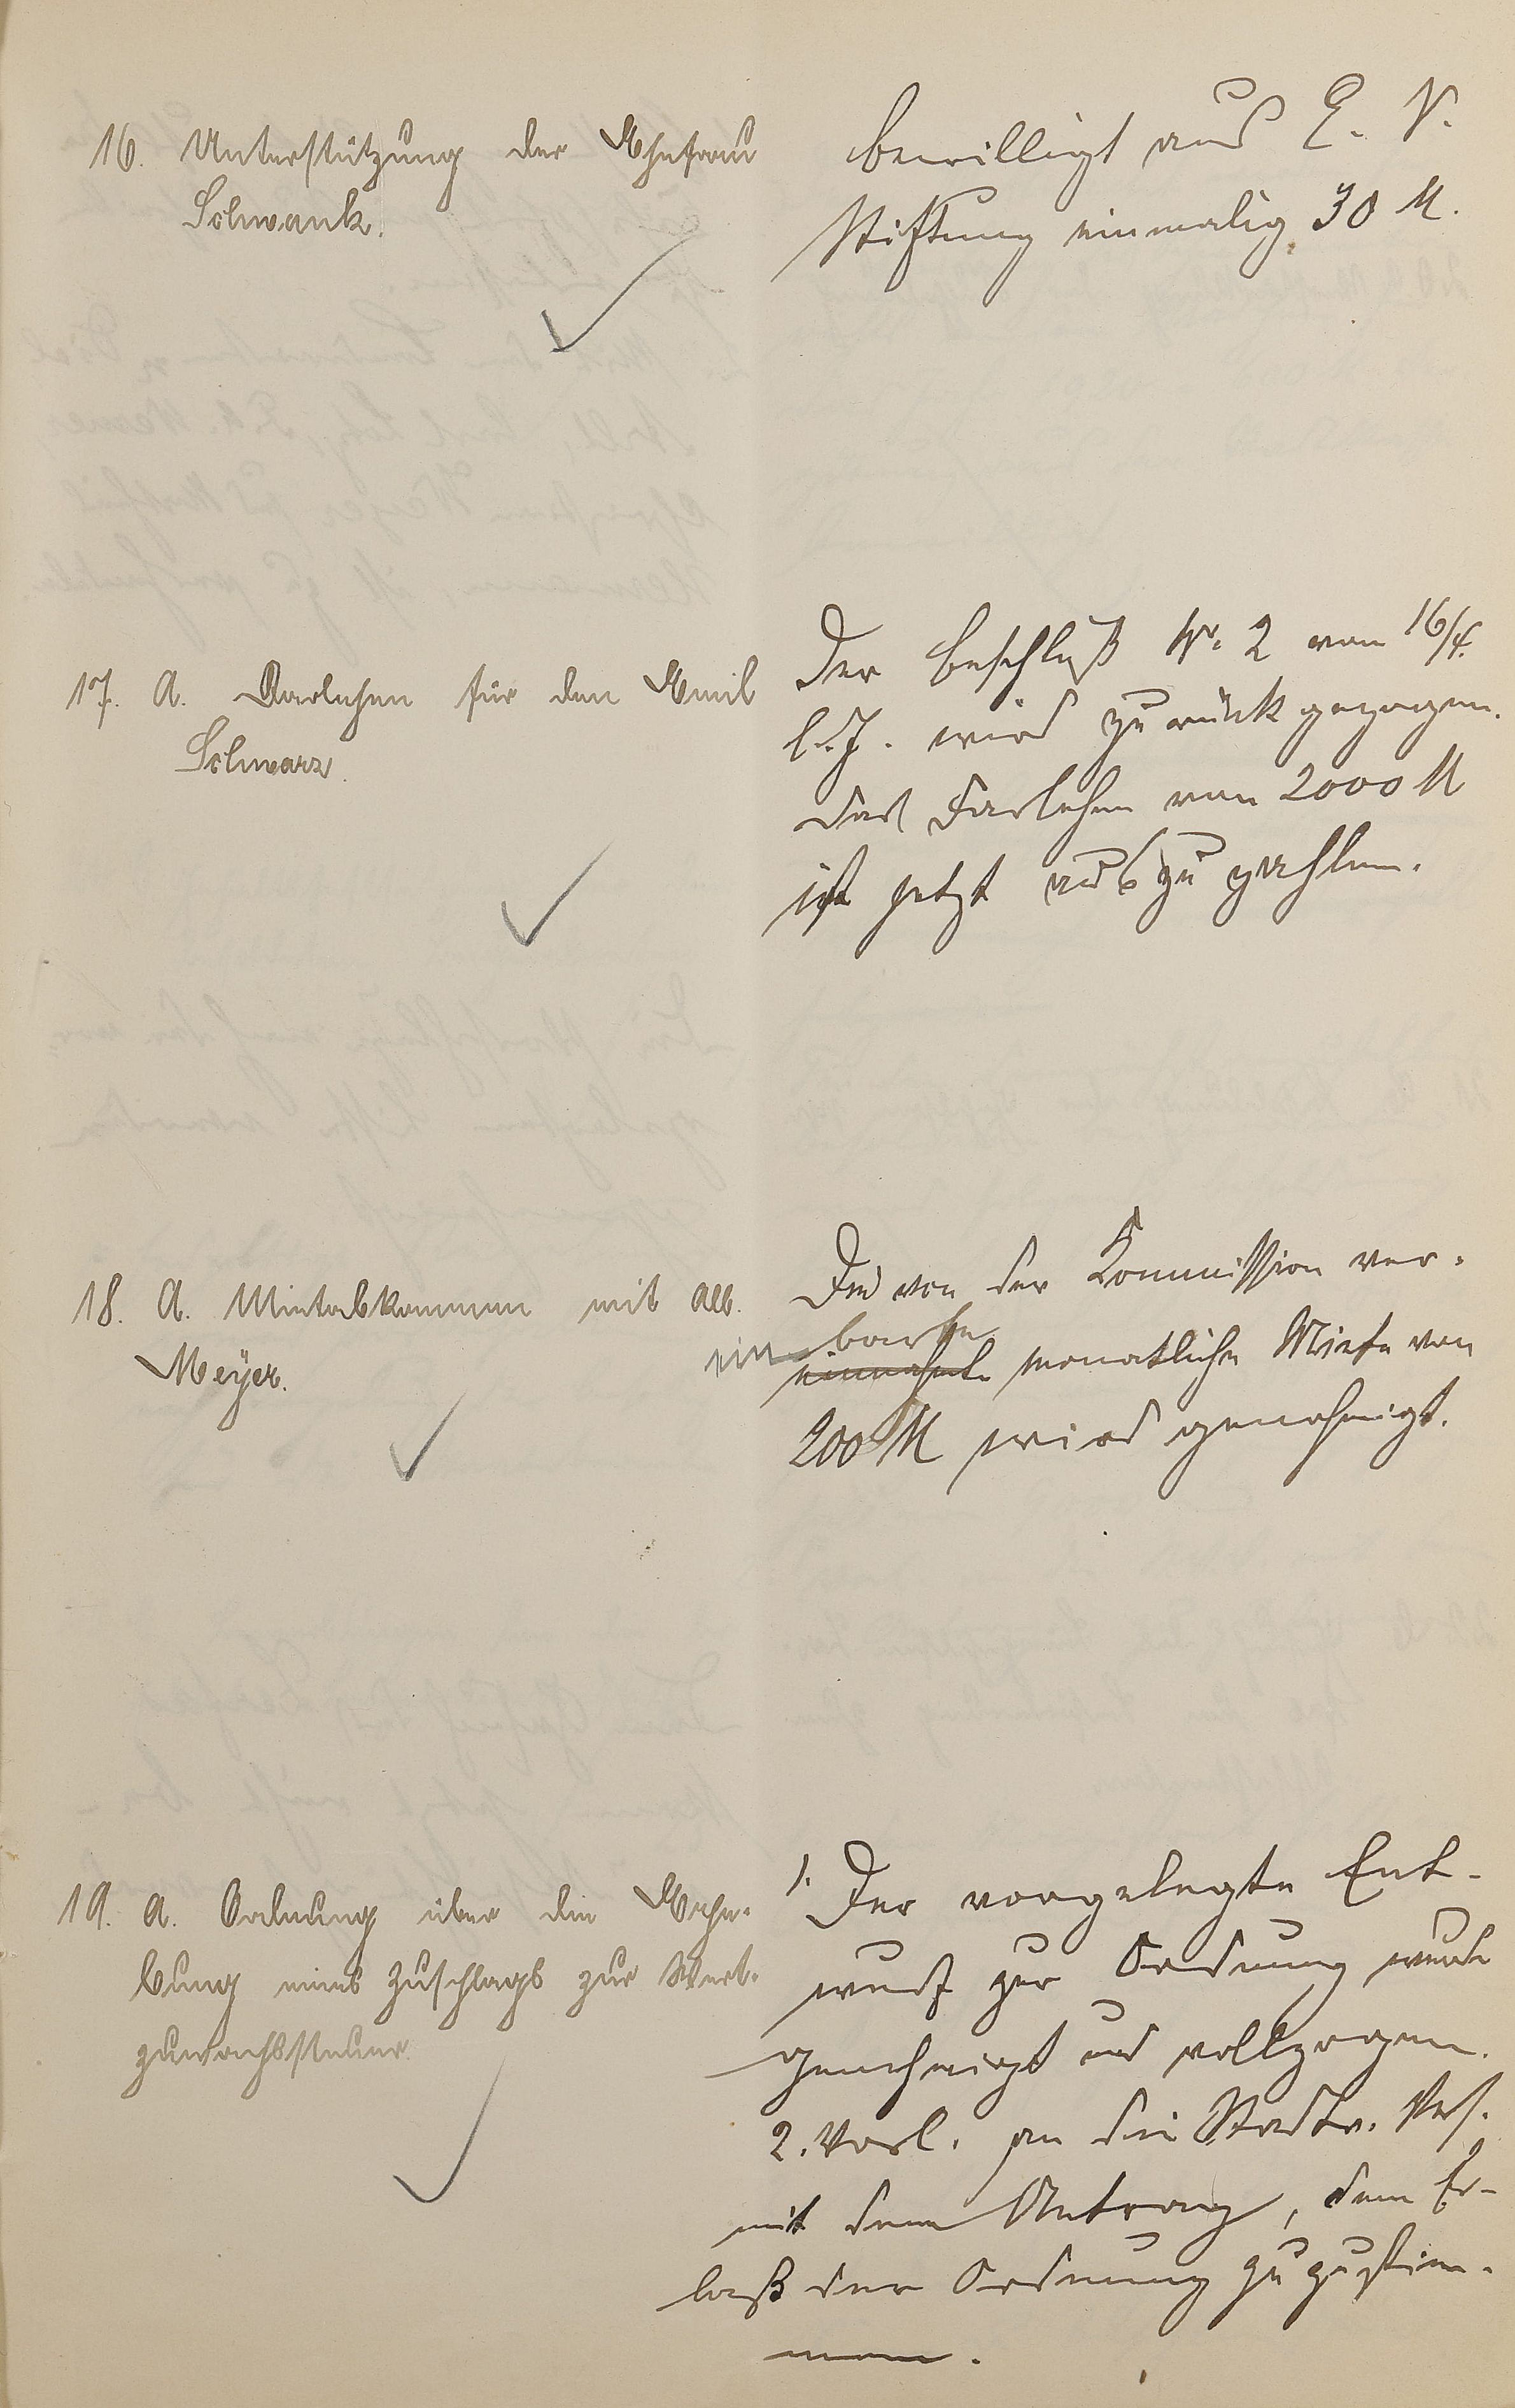 16. Unterstützung der Ehefrau
Schwank.
bewilligt aus E. V.
Stiftung einmalig 30 M.
17. A. Darlehen für den Emil
Schwarz.
Der Beschluß Nr. 2 vom 16/4.
l. J. wird zurückgezogen.
Das Darlehen von 2000 M
ist jetzt auszuzahlen.
18. A. Mietabkommen mit Alb.
Meyer.
Die von der Kommission ver-
einbarte monatliche Miete von
200 M wird genehmigt.
19. A. Ordnung über die Erhe-
bung eines Zuschlags zur Wert-
zuwachssteuer.
1. Der vorgelegte Ent-
wurf zur Ordnung wurde
genehmigt und vollzogen.
2. Vorl. an die Stadtv. Vers.
mit dem Antrag, dem Er-
laß der Ordnung zuzustim-
men.